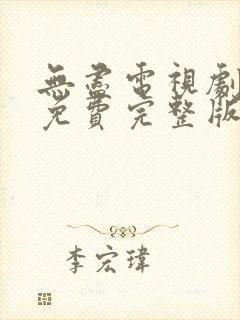 無盡電視劇
免費完整版
李宏瑋